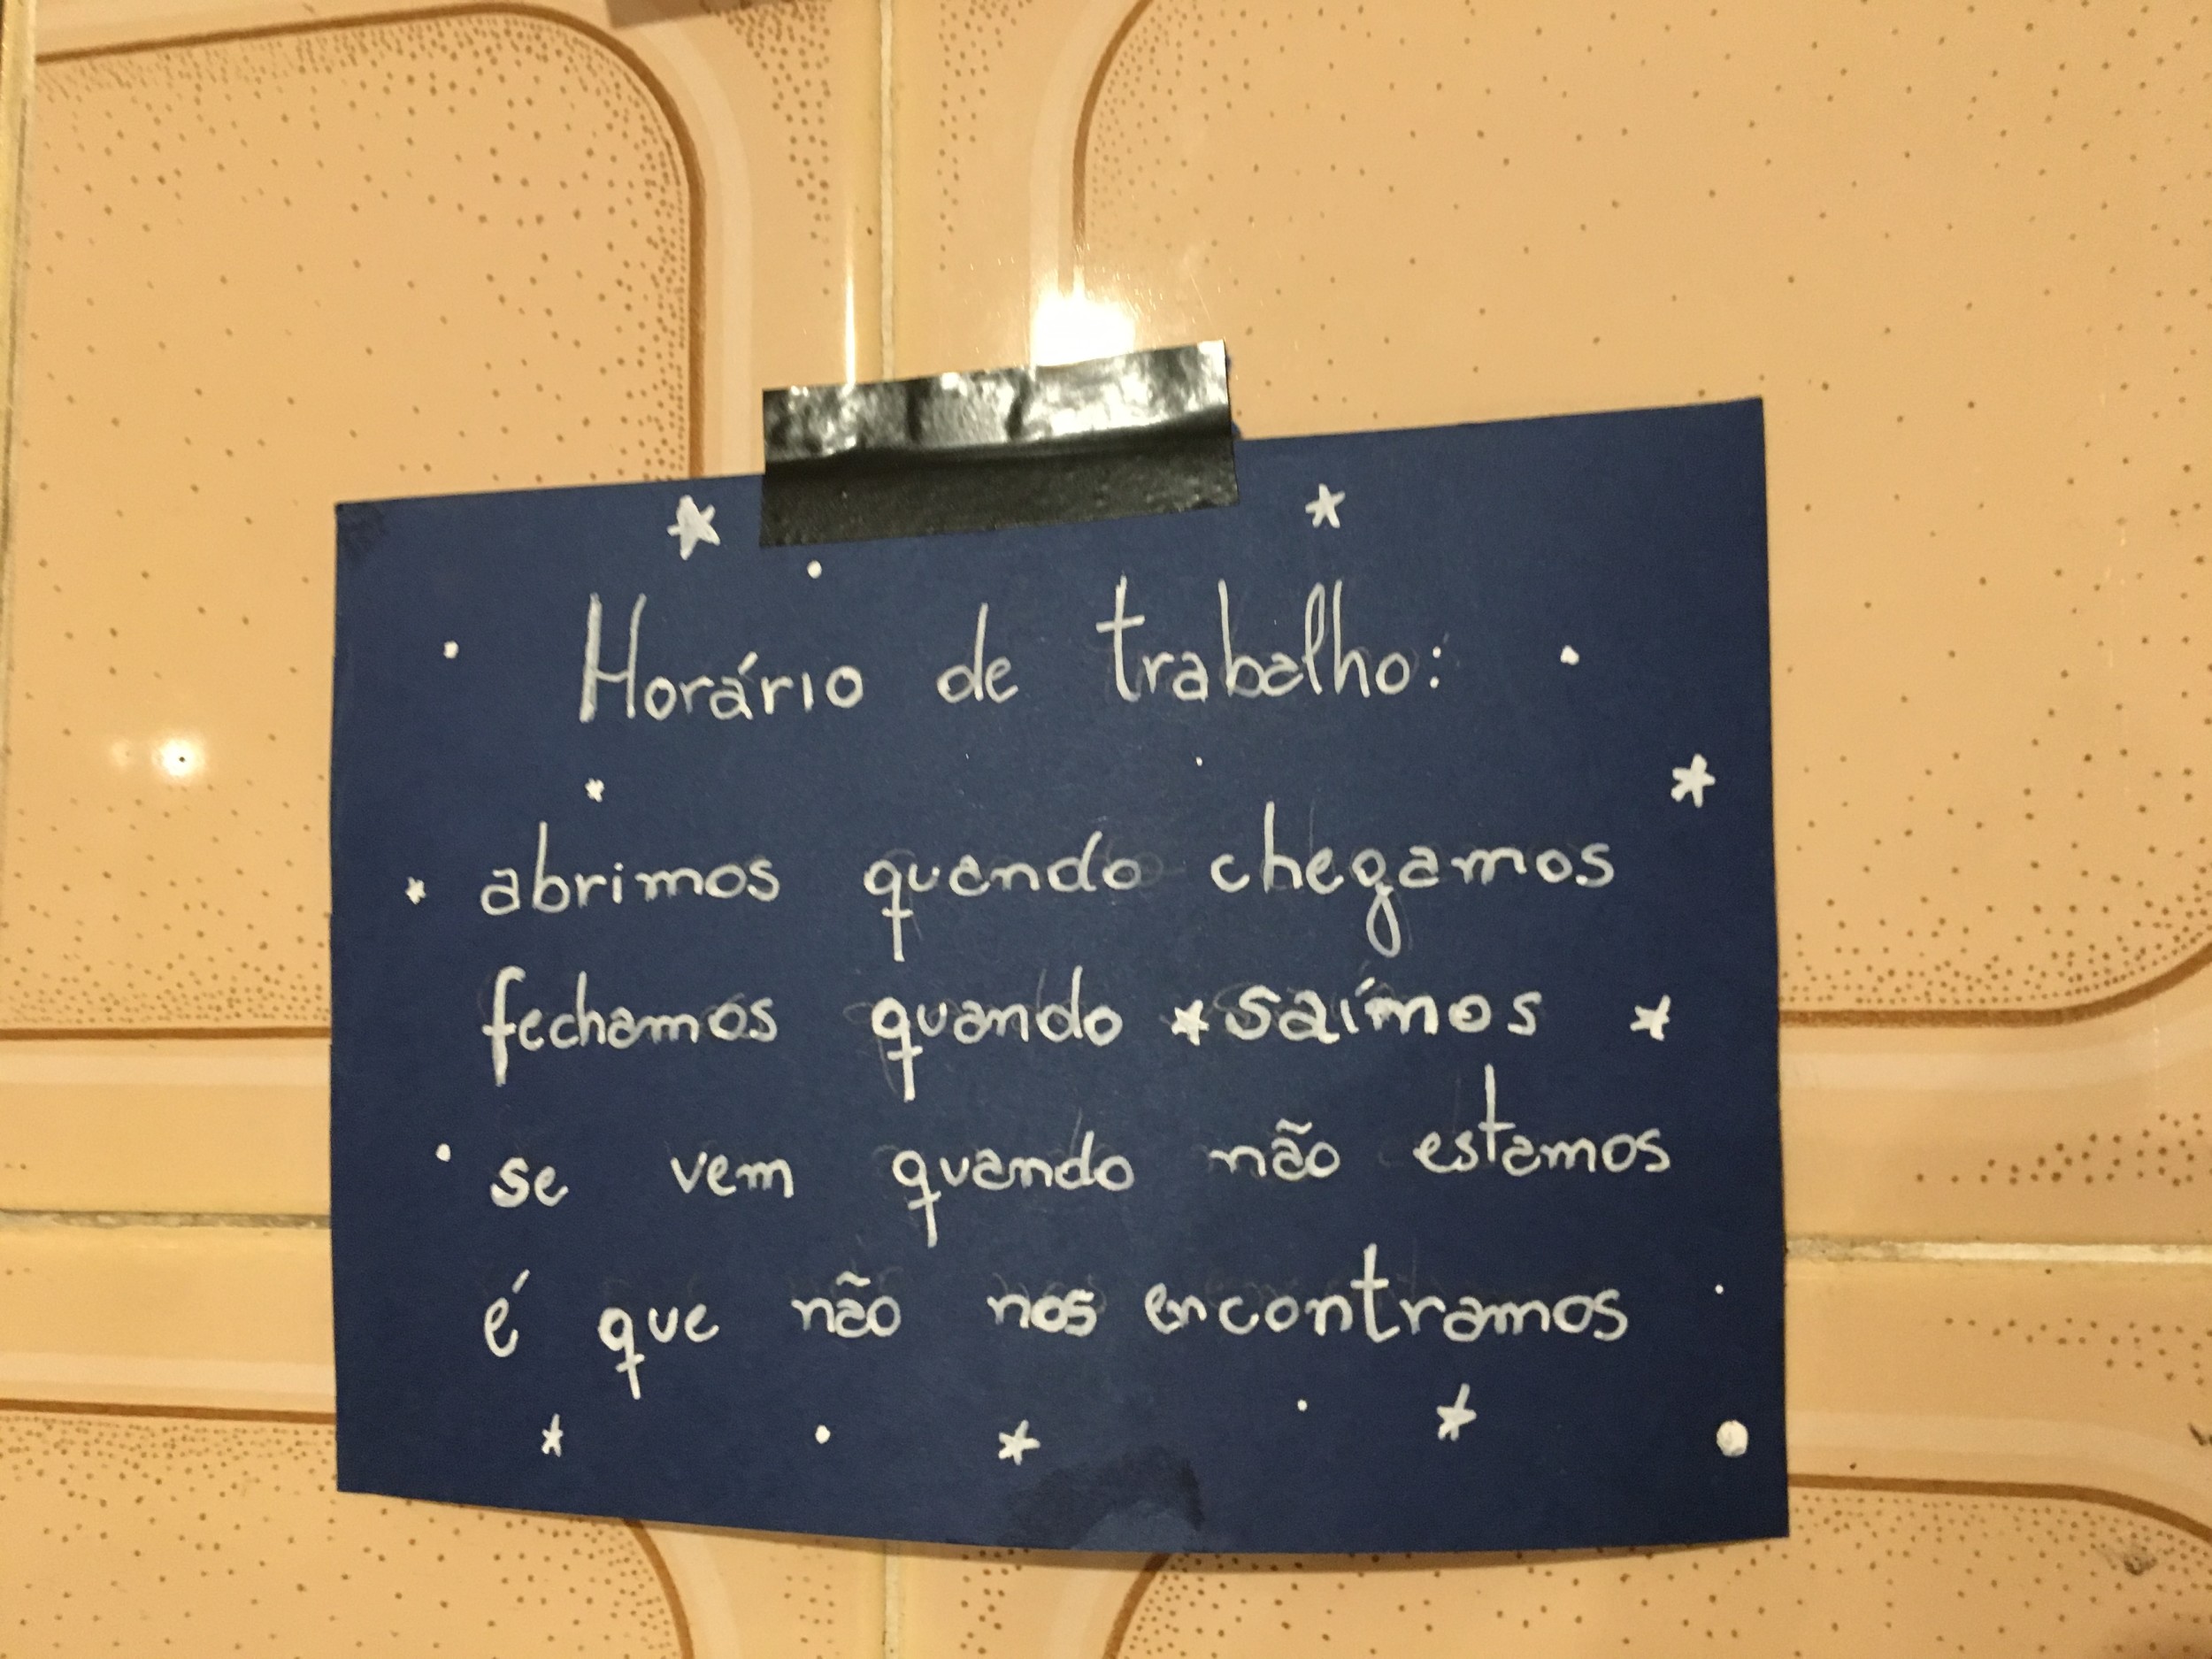 Horário de trabalho:
abrimos quando chegamos
fechamos quando saímos
se vem quando não estamos
é que não nos encontramos